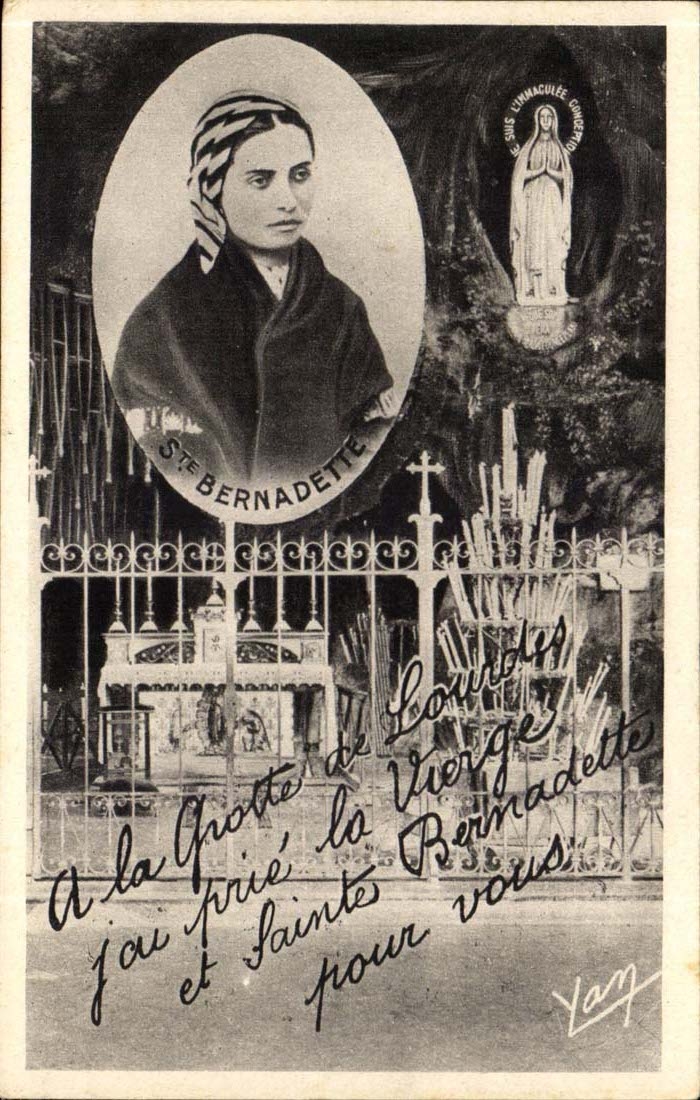 JE SUIS L'IMMACULÉE CONCEPTION
STE BERNADETTE
A la Grotte de Lourdes
j'ai prié la Vierge
et Sainte Bernadette
pour vous
Yan